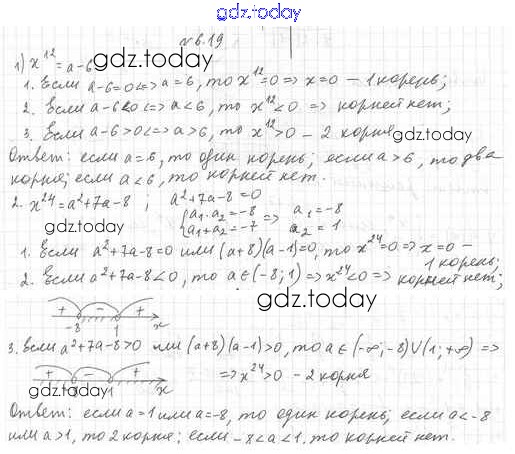 gdz.today
№ 6.19
1) x¹² = a-6 gdz.today
1. Если a-6=0 <=> a=6, то x¹²=0 => x=0 - 1 корень;
2. Если a-6<0 <=> a<6, то x¹²<0 => корней нет;
3. Если a-6>0 <=> a>6, то x¹²>0 - 2 корня gdz.today
Ответ: если a=6, то один корень; если a>6, то два
корня; если a<6, то корней нет.
2. x²⁴=a²+7a-8; a²+7a-8=0
gdz.today {a₁·a₂=-8 => a₁=-8
{a₁+a₂=-7 a₂=1
1. Если a²+7a-8=0 или (a+8)(a-1)=0, то x²⁴=0 => x=0 -
1 корень;
2. Если a²+7a-8<0, то a∈(-8;1) => x²⁴<0 => корней нет;
gdz.today
+ - +
-8 1 x
3. Если a²+7a-8>0 или (a+8)(a-1)>0, то a∈(-∞;-8)∪(1;+∞) =>
=> x²⁴>0 - 2 корня
+ - +
gdz.today 1 x
Ответ: если a=1 или a=-8, то один корень; если a<-8
или a>1, то 2 корня; если -8<a<1, то корней нет.